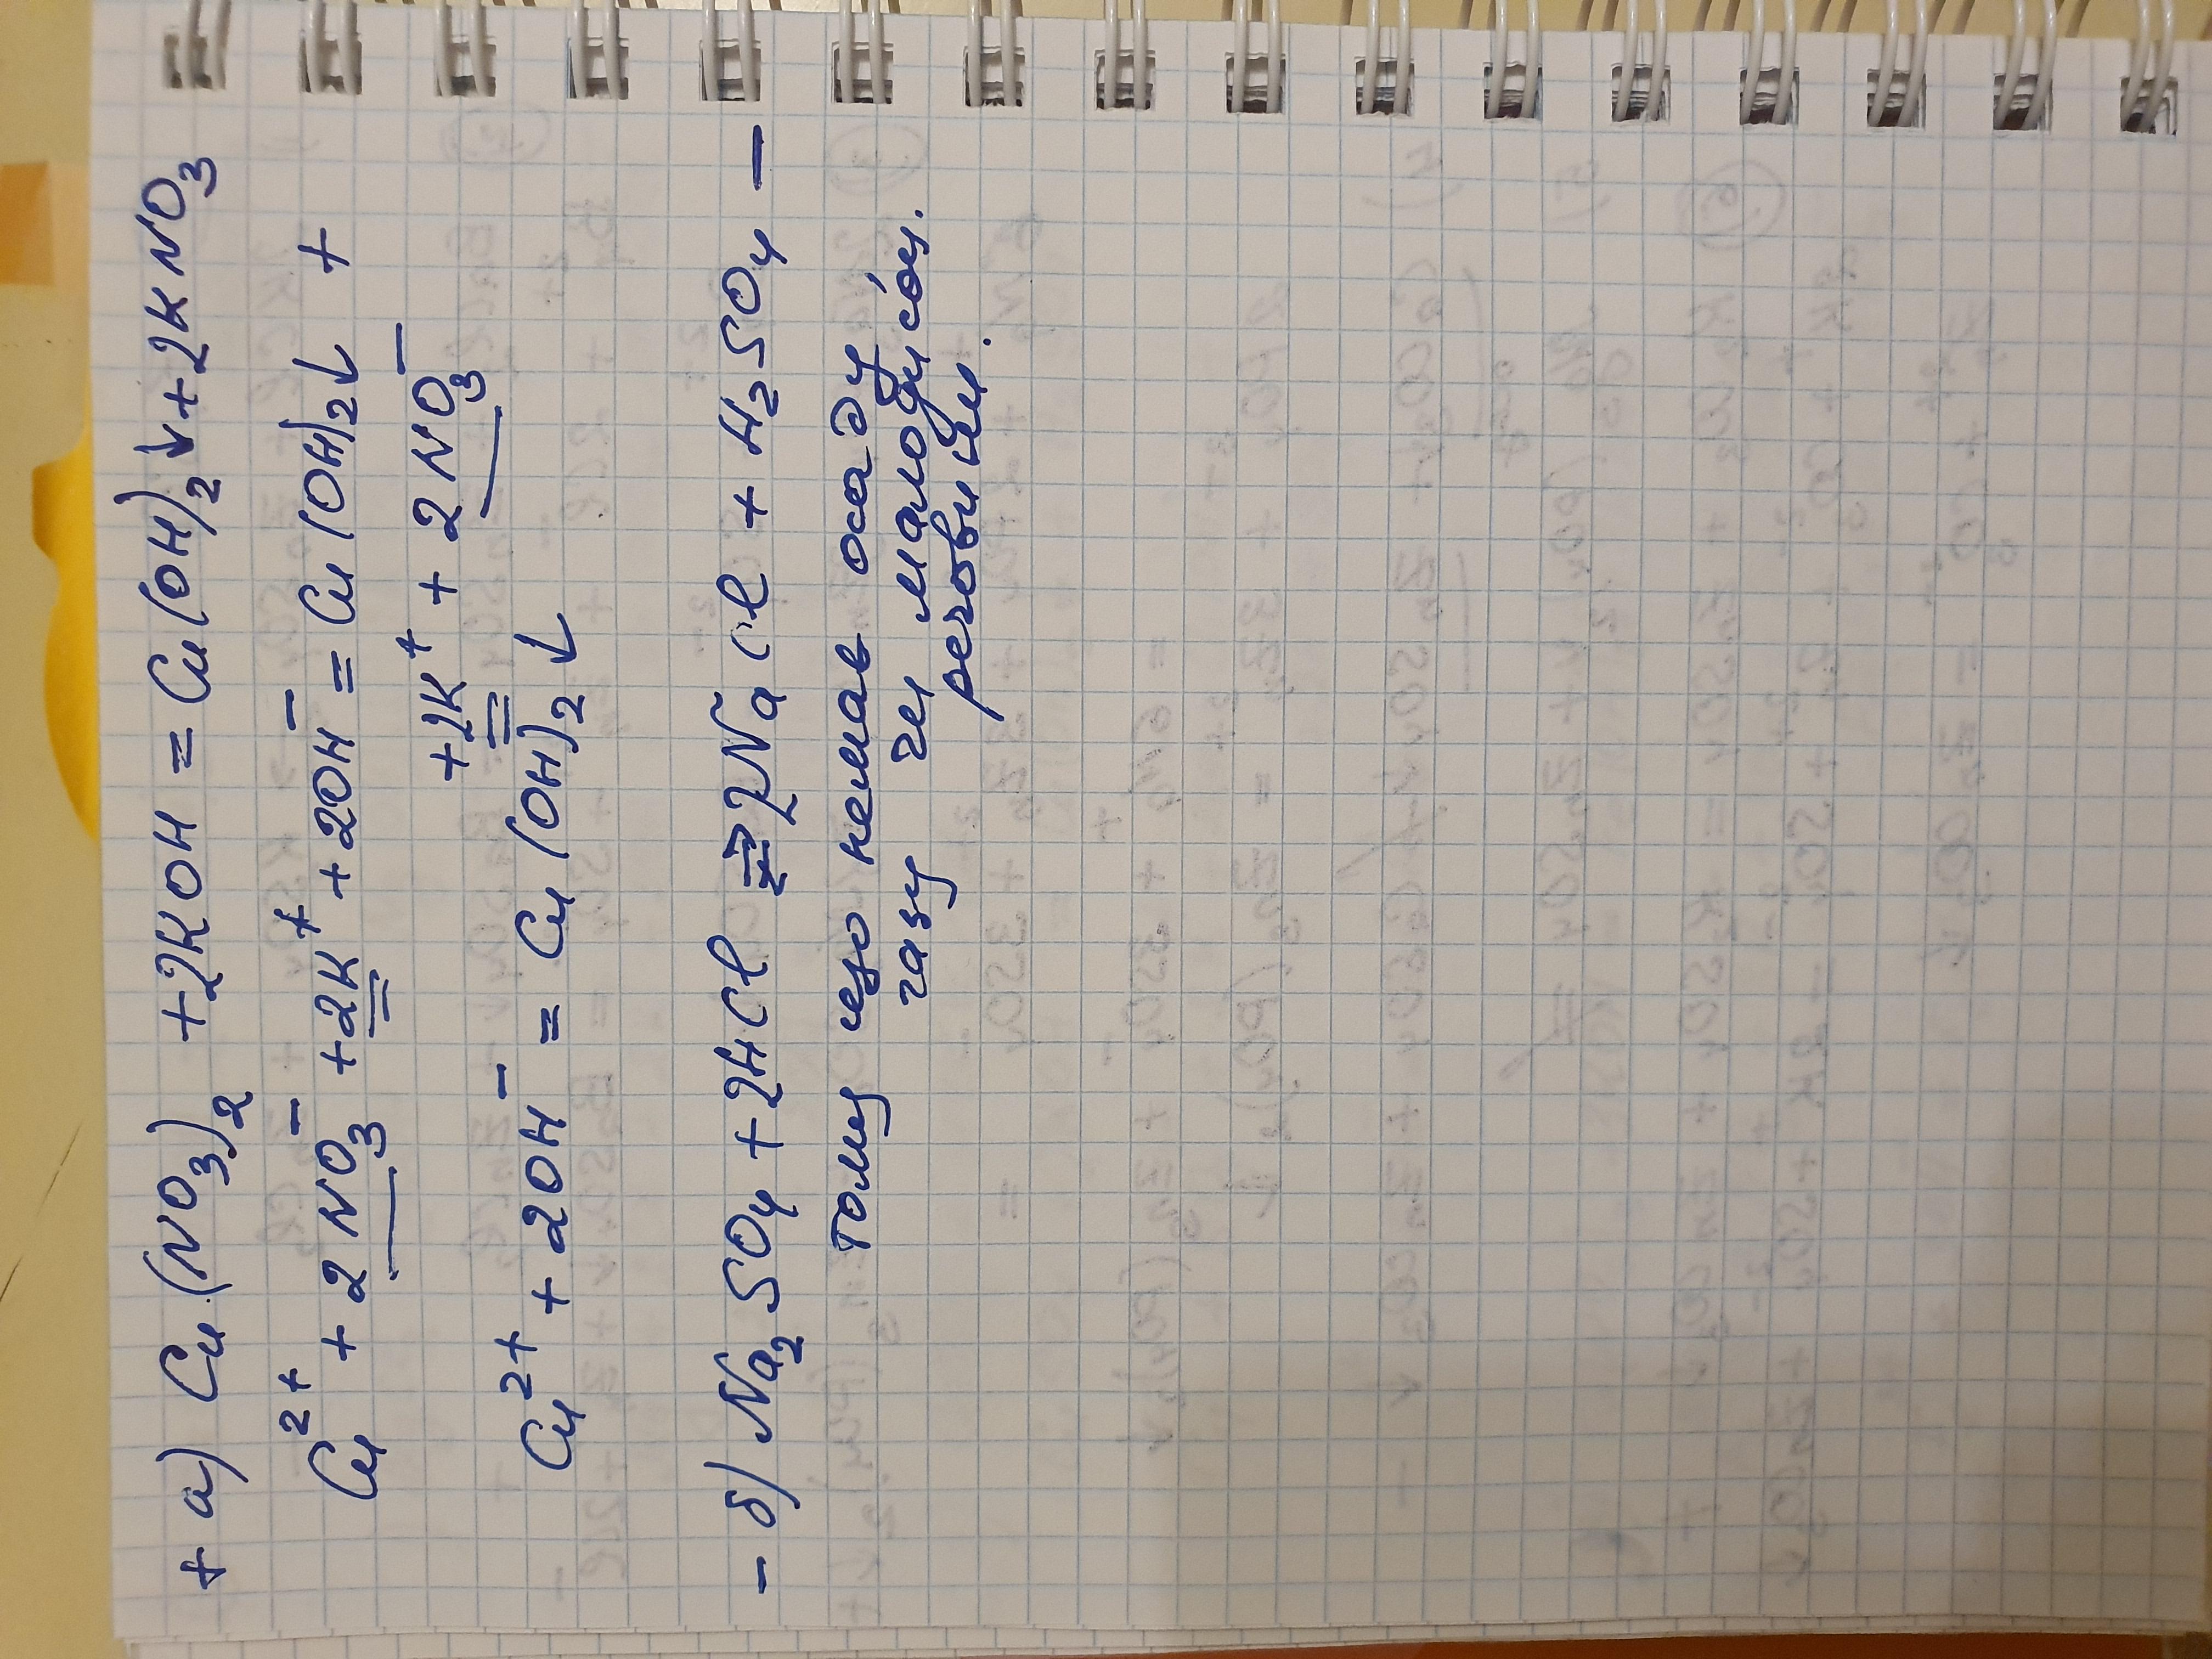 + а) Cu(NO₃)₂ + 2KOH = Cu(OH)₂↓ + 2KNO₃
Cu²⁺ + 2NO₃⁻ + 2K⁺ + 2OH⁻ = Cu(OH)₂↓ +
+ 2K⁺ + 2NO₃⁻
Cu²⁺ + 2OH⁻ = Cu(OH)₂↓
- б) Na₂SO₄ + 2HCl ⇄ 2NaCl + H₂SO₄ -
Тому що немає осаду
газу чи малодисоц.
речовини.